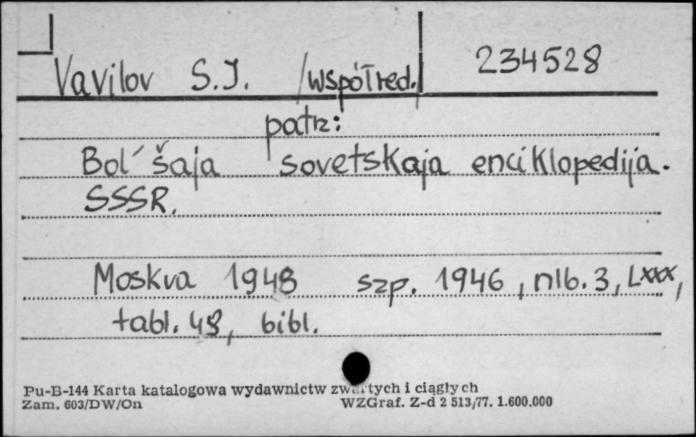 Vavilov S.I. /współred./ 234528
patrz:
Bol'šaja sovetskaja enciklopedija.
SSSR.
Moskva 1948 szp. 1946, nlb. 3, Lxxx,
tabl. 48, bibl.
Pu-B-144 Karta katalogowa wydawnictw zwartych i ciągłych
Zam. 603/DW/On WZGraf. Z-d 2 513/77. 1.600.000